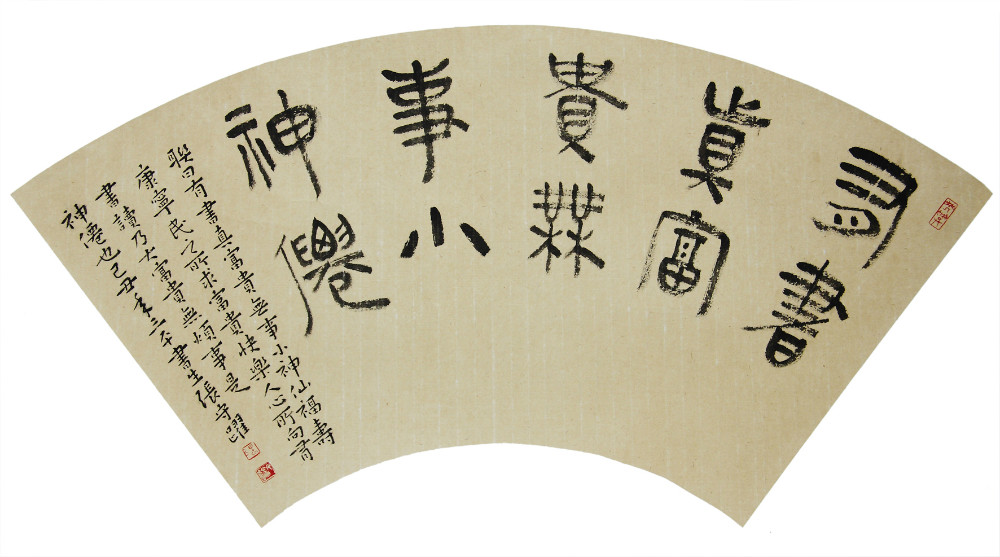 有書
真富
貴無
事小
神僊
聯曰有書真富貴無事小神仙福壽
康寧民之所求富貴快樂人心所向有
書讀乃大富貴無煩事是
神僊也己丑年書生張守躍